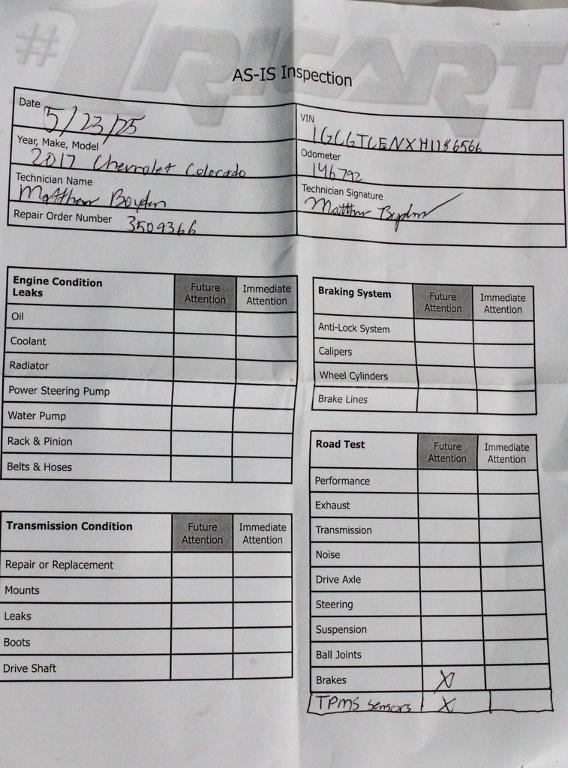 #1 RICART
AS-IS Inspection
Date 5/23/25
VIN 1GCGTCENXH1186566
Year, Make, Model 2017 Chevrolet Colorado
Odometer 146792
Technician Name Matthew Boyden
Technician Signature Matthew Boyden
Repair Order Number 3509366
Engine Condition Leaks Future Attention Immediate Attention
Oil
Coolant
Radiator
Power Steering Pump
Water Pump
Rack & Pinion
Belts & Hoses
Transmission Condition Future Attention Immediate Attention
Repair or Replacement
Mounts
Leaks
Boots
Drive Shaft
Braking System Future Attention Immediate Attention
Anti-Lock System
Calipers
Wheel Cylinders
Brake Lines
Road Test Future Attention Immediate Attention
Performance
Exhaust
Transmission
Noise
Drive Axle
Steering
Suspension
Ball Joints
Brakes X
TPMS sensors X